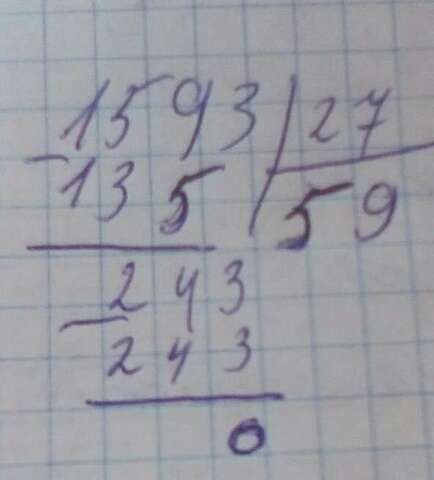 1593 27
- 135 59
243
- 243
0